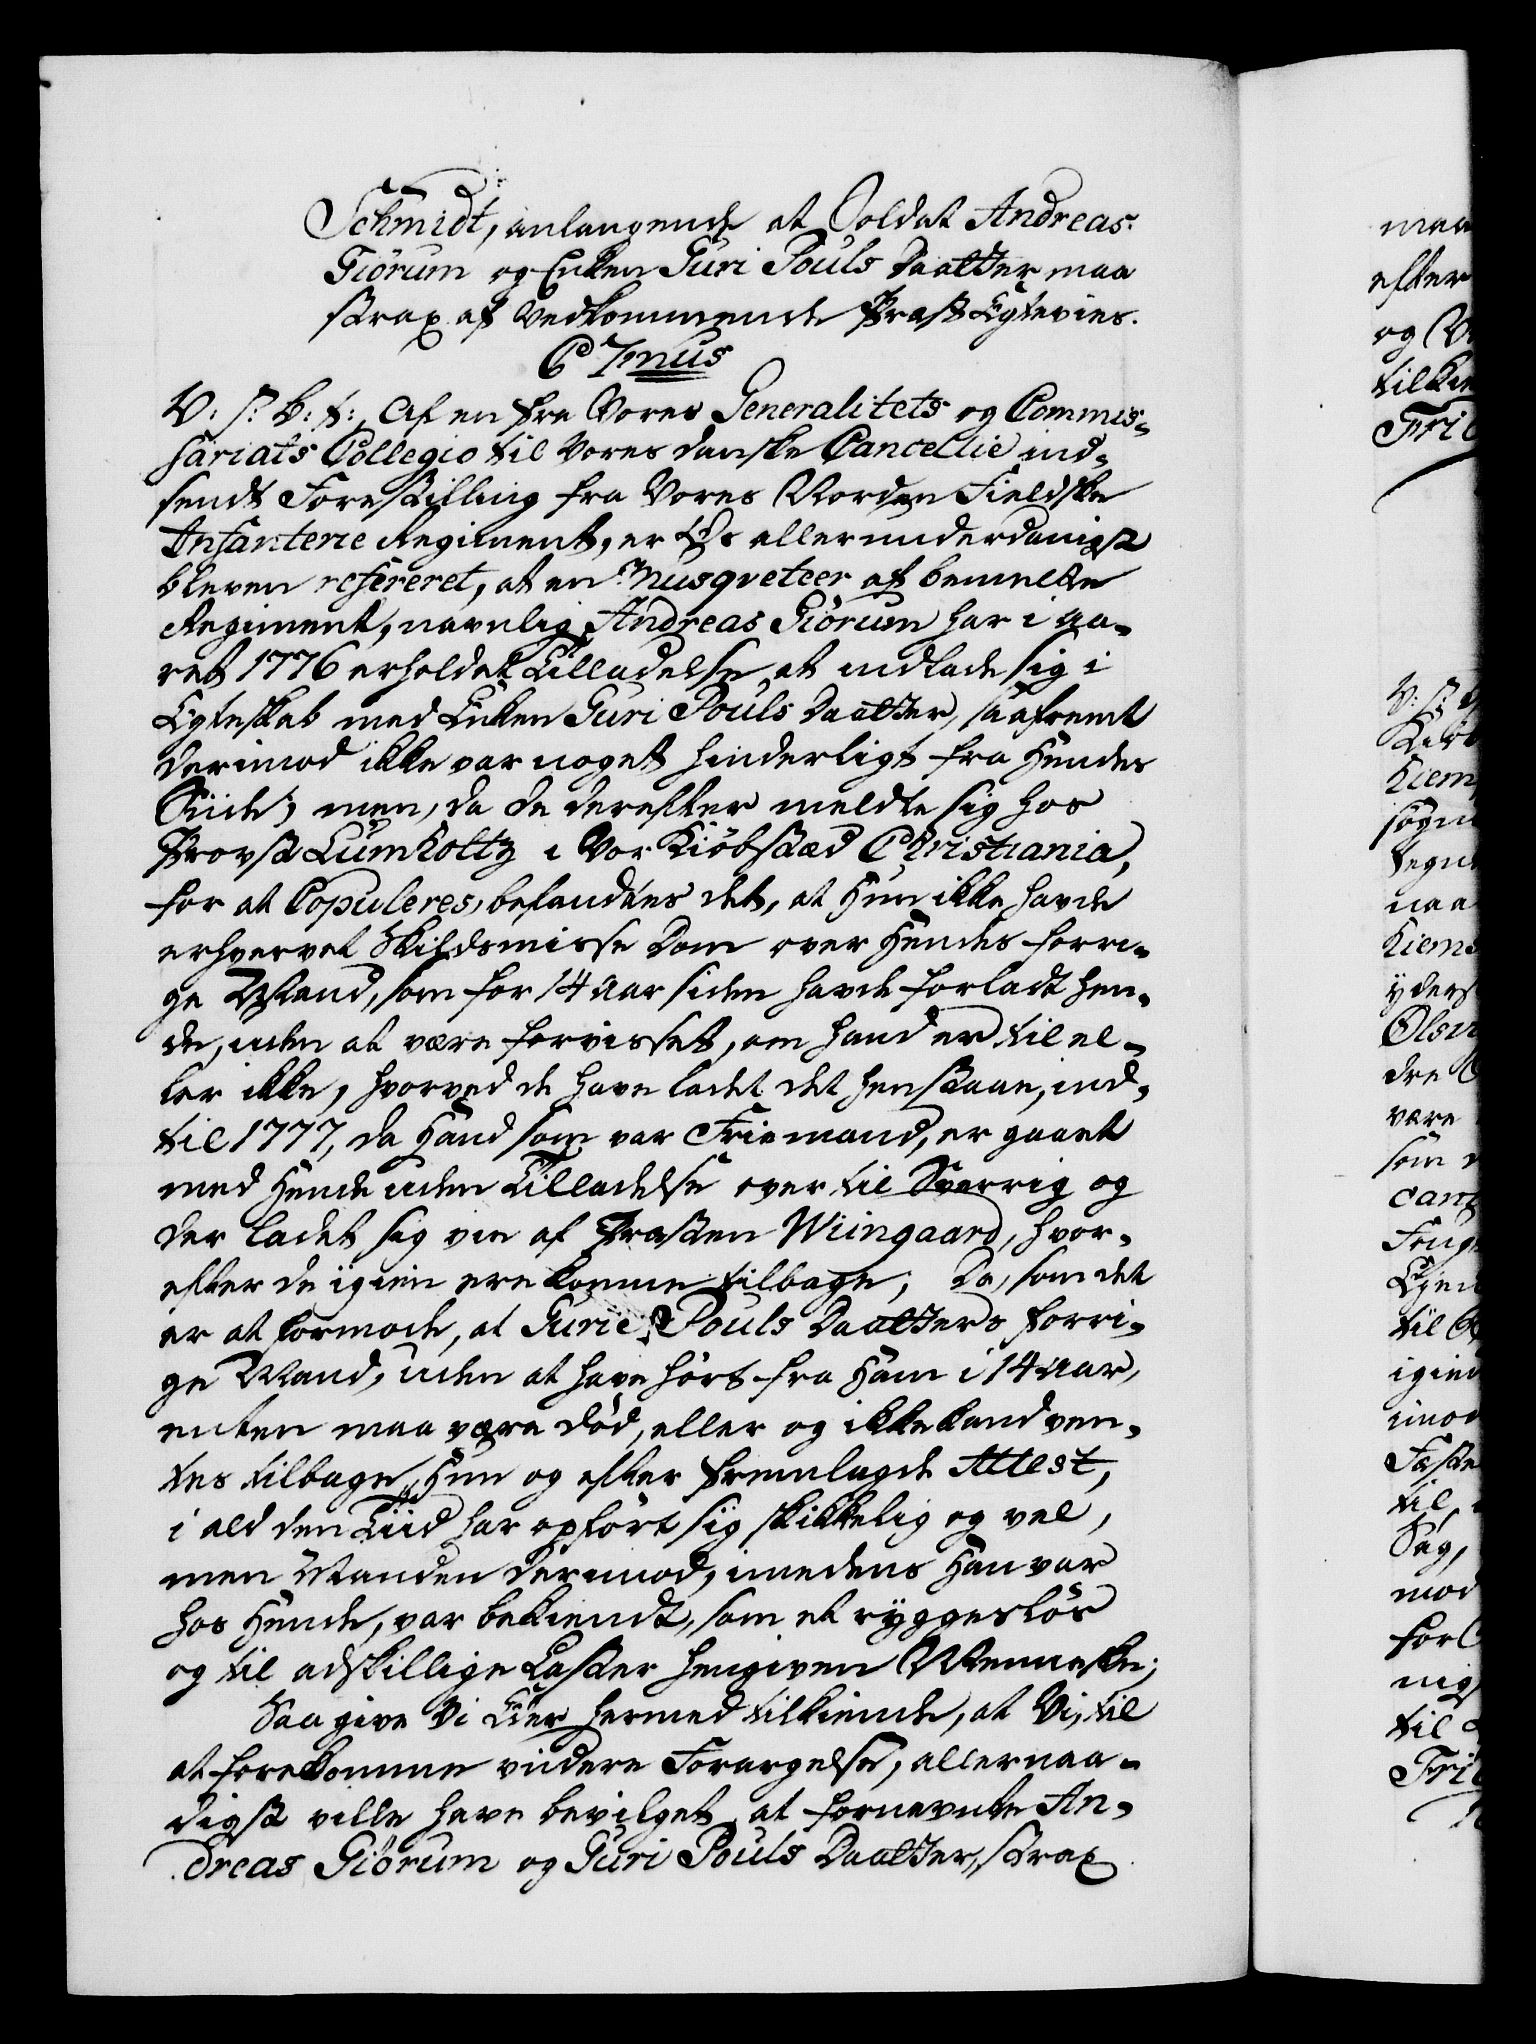 Schmidt, anlangende at Soldat Andreas
Giörum og Enken Guri Pouls Daatter, maa
strax af Vedkommende Præst Egtevies.
C 7mus
V: S: B: t:, Af en fra Vores Generalitets og Commis-
sariats Collegio til Vores danske Cancellie ind-
sendt Forestilling fra Vores Norden Fieldske
Infanterie Regiment, er Os allerunderdanigst
bleven refereret, at en Musqveteer af bemelte
Regiment, navnlig Andreas Giörum har i Aa-
ret 1776 erholdet Tilladelse at indlade sig i
Egteskab med Enken Guri Pouls Daatter, saafremt
derimod ikke var noget hinderligt fra Hendes
Siide, men, da de derefter meldte sig hos
Provst Lumholtz i Vor Kiöbstæd Christiania,
for at Copuleres, befandtes det, at Hun ikke havde
erhvervet Skilsmisse Dom over Hendes forri-
ge Mand, som for 14 Aar siden havde forladt Hen-
de, uden at være forvisset, om hand er til el-
ler ikke, hvorved de have ladet det henstaae, ind-
til 1777, da Hand som var Friemand, er gaaet
med Hende uden Tilladelse over til Sverrig og
der ladet sig vie af Præsten Wiingaard, hvor-
efter de igien ere komne tilbage; Da, som det
er at formode, at Gurie Pouls Daatters forri-
ge Mand, uden at have hört fra Ham i 14 Aar,
enten maa være död, eller og ikke kand ven-
tes tilbage, Hun og efter fremlagde Attest,
i ald den Tiid har opfört sig skikkelig og vel,
men Manden derimod, imedens Han var
hos Hende, var bekiendt, som et ryggeslös
og til adskillige Laster hengiven Menneske;
Saa give Vi Eder hermed tilkiende, at Vi, til
at forekomme viidere Forargelse, allernaa-
digst ville have bevilget, at fornævnte An-
dreas Giörum og Guri Pouls Daatter, strax